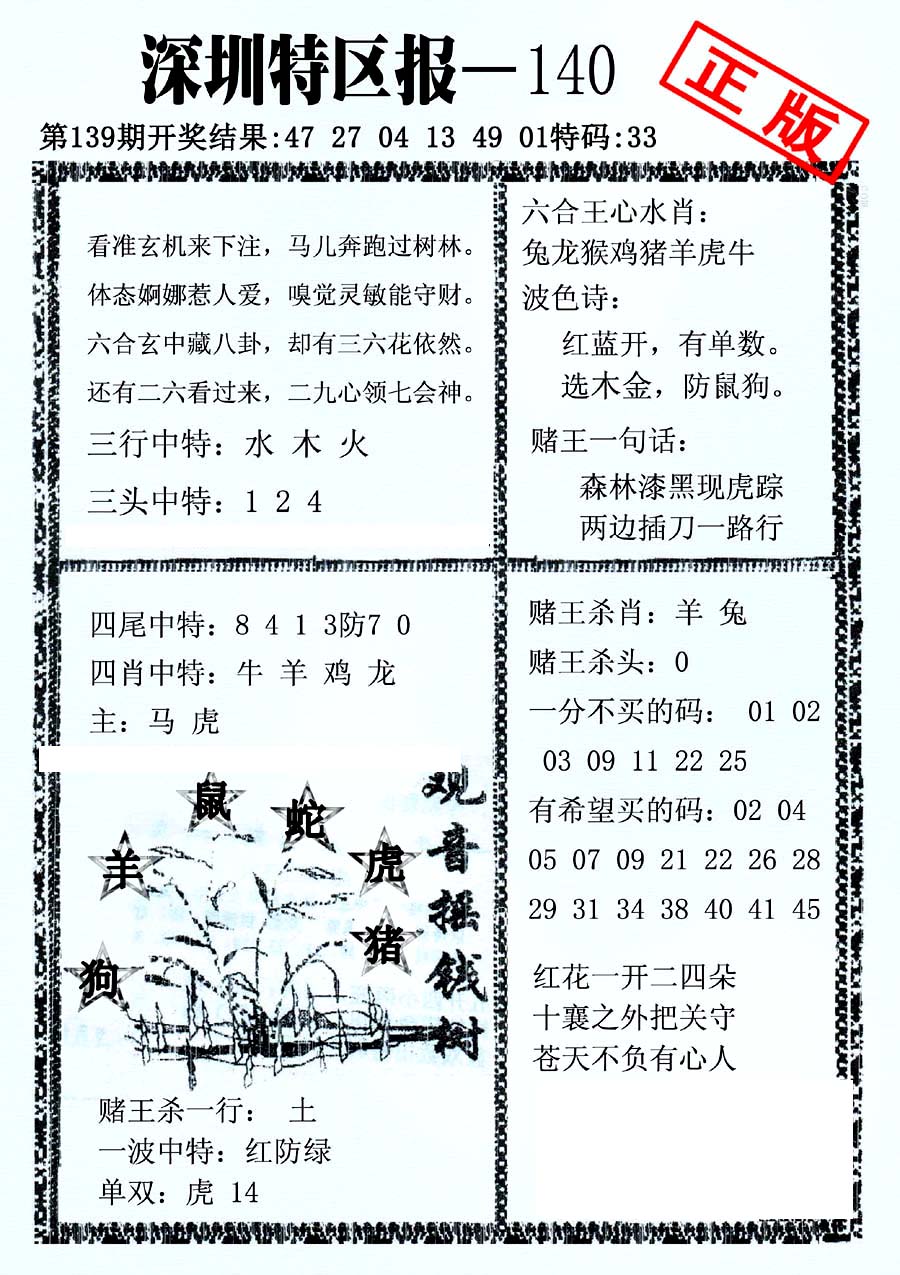 深圳特区报—140
正版
第139期开奖结果:47 27 04 13 49 01特码:33
看准玄机来下注，马儿奔跑过树林。
体态婀娜惹人爱，嗅觉灵敏能守财。
六合玄中藏八卦，却有三六花依然。
还有二六看过来，二九心领七会神。
三行中特：水 木 火
三头中特：1 2 4
六合王心水肖：
兔龙猴鸡猪羊虎牛
波色诗：
红蓝开，有单数。
选木金，防鼠狗。
赌王一句话：
森林漆黑现虎踪
两边插刀一路行
四尾中特：8 4 1 3防7 0
四肖中特：牛 羊 鸡 龙
主：马 虎
观音摇钱树
鼠
蛇
羊
虎
猪
狗
赌王杀一行： 土
一波中特：红防绿
单双：虎 14
赌王杀肖：羊 兔
赌王杀头：0
一分不买的码： 01 02
03 09 11 22 25
有希望买的码：02 04
05 07 09 21 22 26 28
29 31 34 38 40 41 45
红花一开二四朵
十襄之外把关守
苍天不负有心人